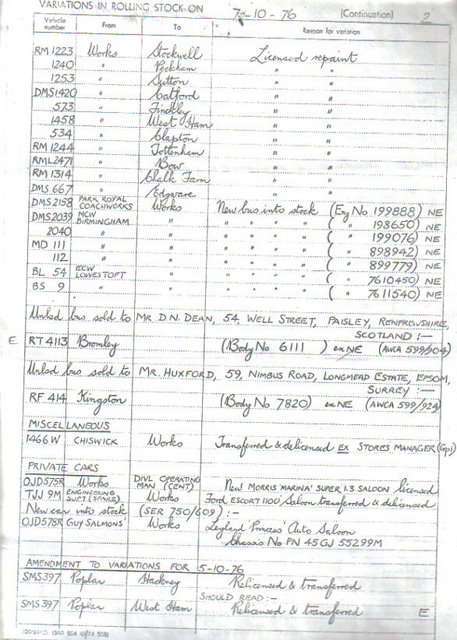 VARIATIONS IN ROLLING STOCK ON 7-10-76 (Continuation) 2
Vehicle number From To Reason for variation
RM 1223 Works Stockwell Licensed repaint
1240 " Peckham " "
1253 " Sutton " "
DMS 1420 " Catford " "
523 " Finchley " "
1458 " West Ham " "
534 " Clapton " "
RM 1244 " Tottenham " "
RML 2471 " Bow " "
RM 1314 " Chalk Farm " "
DMS 667 " Edgware " "
DMS 2158 PARK ROYAL COACHWORKS Works New bus into stock (Eng No 199888) NE
DMS 2039 MCW BIRMINGHAM " " " " " ( " 198650) NE
2040 " " " " " " ( " 199076) NE
MD 111 " " " " " " ( " 898942) NE
112 " " " " " " ( " 899779) NE
BL 54 ECW LOWESTOFT " " " " " ( " 7610450) NE
BS 9 " " " " " " ( " 7611540) NE
Unlsd bus sold to MR D.N. DEAN, 54 WELL STREET, PAISLEY, RENFREWSHIRE,
SCOTLAND :-
E RT 4113 Bromley (Body No 6111 ) ex NE (AWCA 599/904)
Unlsd bus sold to MR. HUXFORD, 59, NIMBUS ROAD, LONGMEAD ESTATE, EPSOM,
SURREY :-
RF 414 Kingston (Body No 7820) ex NE (AWCA 599/924)
MISCELLANEOUS
1466 W CHISWICK Works Transferred & delicensed EX STORES MANAGER (Gps)
PRIVATE CARS
OJD 575R Works DIVL OPERATING MAN (CENT) New MORRIS 'MARINA' SUPER 1.3 SALOON licensed
TJJ 9M ENGINEERING Works Ford ESCORT 1100 Saloon transferred & delicensed
New car into stock (SER 750/609) :-
OJD 578R GUY SALMONS' Works Leyland Princess Auto Saloon
Chassis No PN 45GJ 55299M
AMENDMENT TO VARIATIONS FOR 5-10-76
SMS 397 Poplar Hackney Relicensed & transferred
SHOULD READ :-
SMS 397 Poplar West Ham Relicensed & transferred E